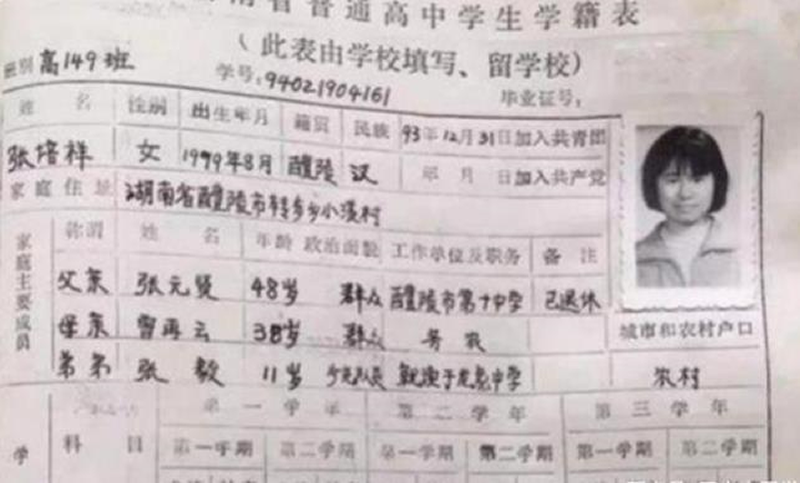 南省普通高中学生学籍表
（此表由学校填写、留学校）
班别高149班 学号:94021904161 毕业证号:
姓名 性别 出生年月 籍贯 民族 93年12月31日加入共青团
张培祥 女 1979年8月 醴陵 汉 年 月 日加入共产党
家庭住址 湖南省醴陵市转步乡小溪村
家庭主要成员 称谓 姓名 年龄 政治面貌 工作单位及职务 备注
父亲 张元贤 48岁 群众 醴陵市第十中学 已退休
母亲 曾再云 38岁 群众 务农
城市和农村户口
弟弟 张毅 11岁 少先队员 就读于 中学
农村
学 科目 第一学年 第二学年 第三学年
第一学期 第二学期 第一学期 第二学期 第一学期 第二学期